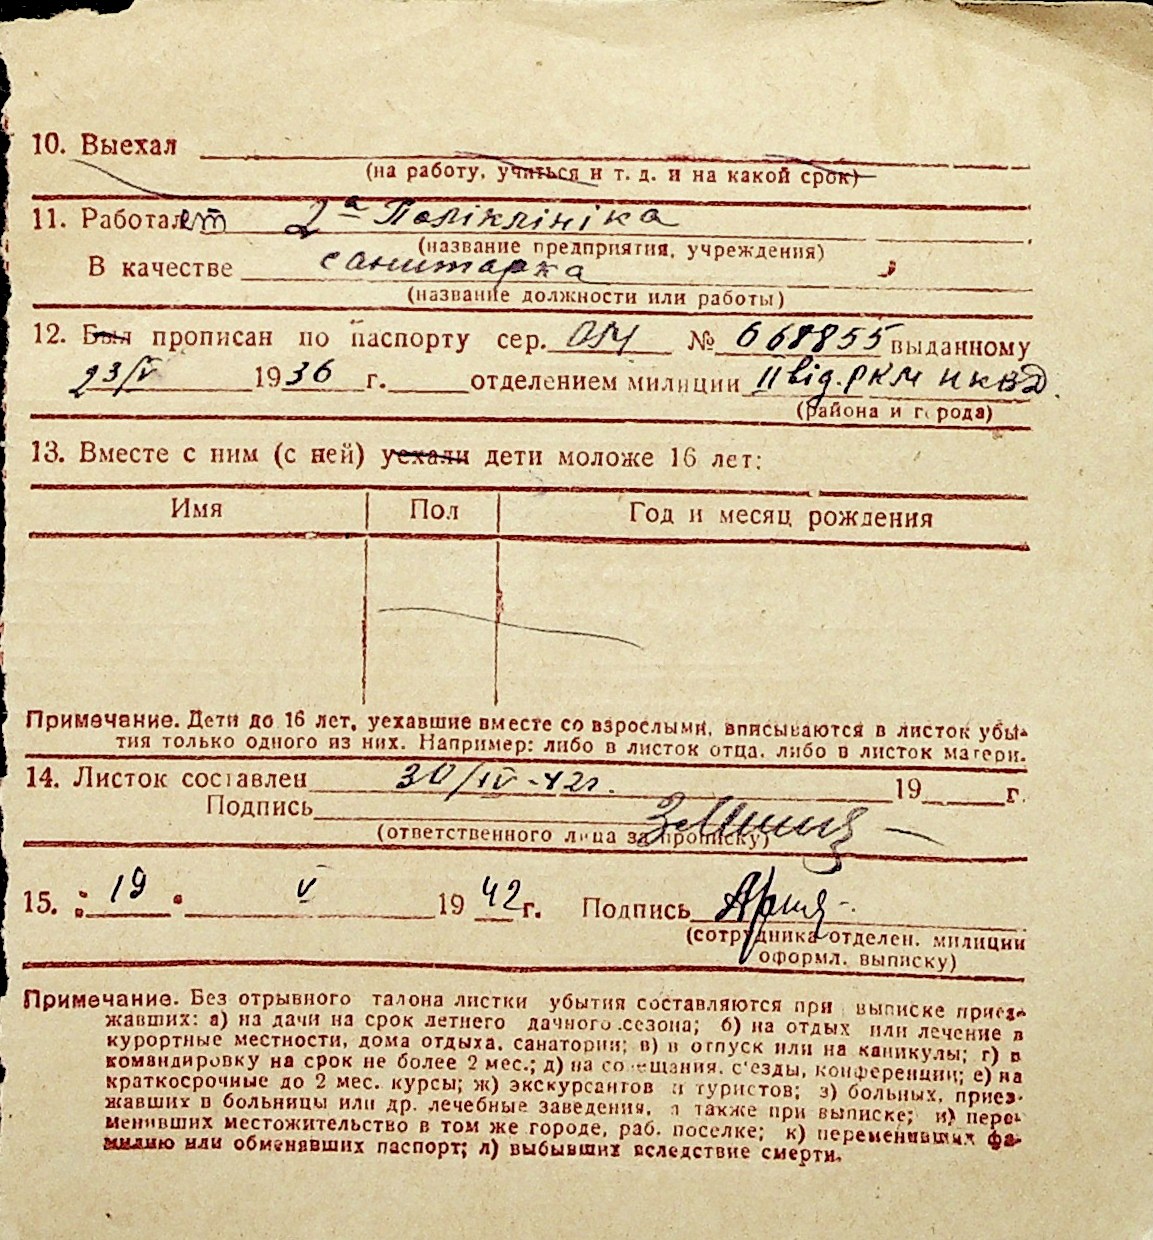 10. Выехал
(на работу, учиться и т. д. и на какой срок)
11. Работает 2а Поліклініка
(название предприятия, учреждения)
В качестве санитарка
(название должности или работы)
12. Был прописан по паспорту сер. № 668855 выданному
23/V 1936 г. отделением милиции II від. РКМ НКВД.
(района и города)
13. Вместе с ним (с ней) уехали дети моложе 16 лет:
Имя Пол Год и месяц рождения
Примечание. Дети до 16 лет, уехавшие вместе со взрослыми, вписываются в листок убы-
тия только одного из них. Например: либо в листок отца, либо в листок матери.
14. Листок составлен 30/IV-42г. 19 г.
Подпись
(ответственного лица за прописку)
15. „19“ V 1942 г. Подпись
(сотрудника отделен. милиции
оформл. выписку)
Примечание. Без отрывного талона листки убытия составляются при выписке приез-
жавших: а) на дачи на срок летнего дачного сезона; б) на отдых или лечение в
курортные местности, дома отдыха, санатории; в) в отпуск или на каникулы; г) в
командировку на срок не более 2 мес.; д) на совещания, с'езды, конференции; е) на
краткосрочные до 2 мес. курсы; ж) экскурсантов и туристов; з) больных, приез-
жавших в больницы или др. лечебные заведения, а также при выписке; и) пере-
менивших местожительство в том же городе, раб. поселке; к) переменивших фа-
милию или обменявших паспорт; л) выбывших вследствие смерти.